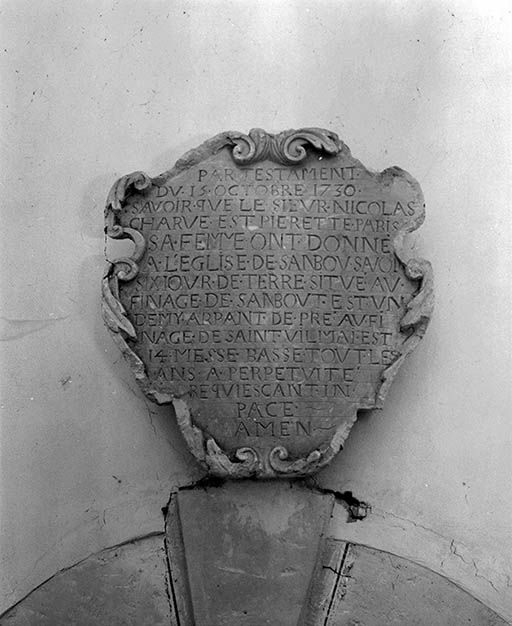 PAR TESTAMENT·
DV 15·OCTOBRE 1730·
SAVOIR·QVE LE SIEVR·NICOLAS
CHARVE·EST·PIERETTE·PARIS
SA·FEMME·ONT·DONNE
A·L'EGLISE·DE·SANBOV·SAVOI
SIX·JOVR·DE·TERRE·SITVE·AV·
FINAGE·DE·SANBOVT·EST·VN
DEMY·ARPANT·DE·PRE'·AV·FI
NAGE·DE·SAINT·VILMAI·EST
14·MESSE·BASSE·TOVT·LES
ANS·A·PERPETVITE'
REQVIESCANT·IN·
PACE·
AMEN